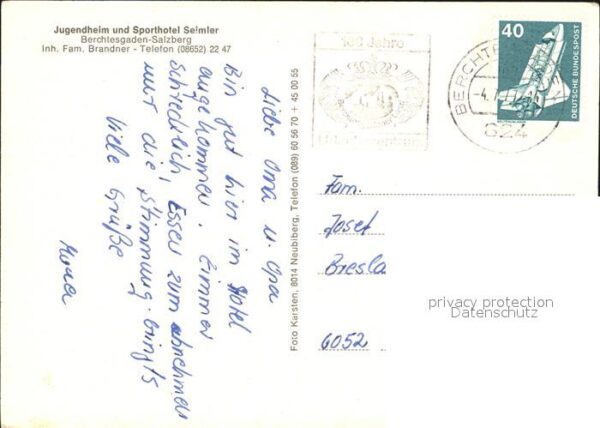 Jugendheim und Sporthotel Seimler
Berchtesgaden-Salzberg
Inh. Fam. Brandner - Telefon (08652) 22 47
Liebe Oma u. Opa
Bin gut hier im Hotel
angekommen. Zimmer
schrecklich, Essen zum abnehmen
nur die Stimmung bringt's
Viele Grüße
Foto Karsten, 8014 Neubiberg, Telefon (089) 60 56 70 + 45 00 55
Jahre
40
DEUTSCHE BUNDESPOST
BERCHTE
824
Fam.
Josef
Bresla
6052
privacy protection
Datenschutz